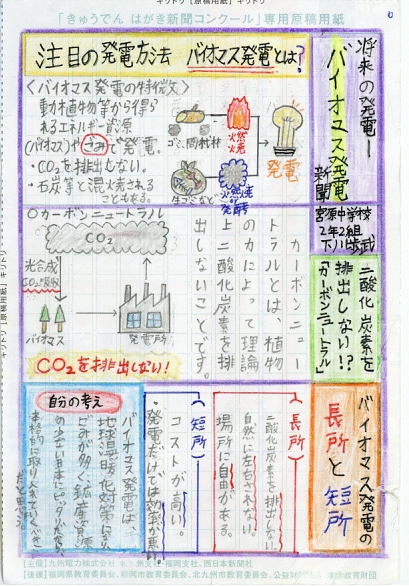 「きゅうでん はがき新聞コンクール」専用原稿用紙
将来の発電ー
バイオマス発電
新聞
宮原中学校
2年2組
注目の発電方法 バイオマス発電とは?
<バイオマス発電の特徴>
動植物等から得ら
れるエネルギー資源
(バイオマス)やごみで発電。
・CO₂を排出しない。
・石炭等と混焼される
こともある。
ゴミ、間伐材
燃焼
生ゴミなど
発酵
発電
二酸化炭素を
排出しない!?
「カーボンニュートラル」
○カーボンニュートラル
CO₂
光合成
CO₂吸収
バイオマス
発電所
CO₂を排出しない!
カーボンニュー
トラルとは、植物
の力によって理論
上二酸化炭素を排
出しないことです。
バイオマス発電の
長所と短所
(長所)
二酸化炭素を排出しない。
自然に左右されない。
場所に自由がある。
(短所)
コストが高い。
・発電だけでは効率が悪い
自分の考え
バイオマス発電は、
地球温暖化対策になり、
ごみが多く鉱産資源
の少ない日本にピッタリだから、
本格的に取り入れていくべき
だと思う。
キリトリ